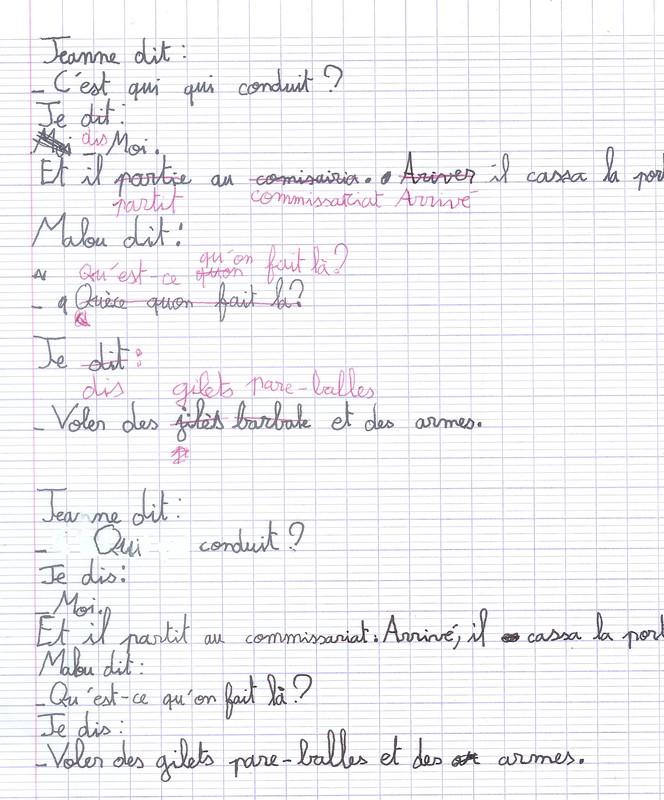 Jeanne dit :
- C'est qui qui conduit ?
Je dit :
dis
Moi - Moi.
Et il partie au comisairia. Ariver il cassa la por
partit commissariat Arrivé
Malou dit :
qu'on
Qu'est-ce quon fait là ?
- q Quèce quon fait la ?
Q
Je dit :
dis gilets pare-balles
- Voler des jilès barbale et des armes.
Jeanne dit :
- Qui conduit ?
Je dis :
- Moi.
Et il partit au commissariat. Arrivé, il cassa la port
Malou dit :
- Qu'est-ce qu'on fait là ?
Je dis :
- Voler des gilets pare-balles et des armes.